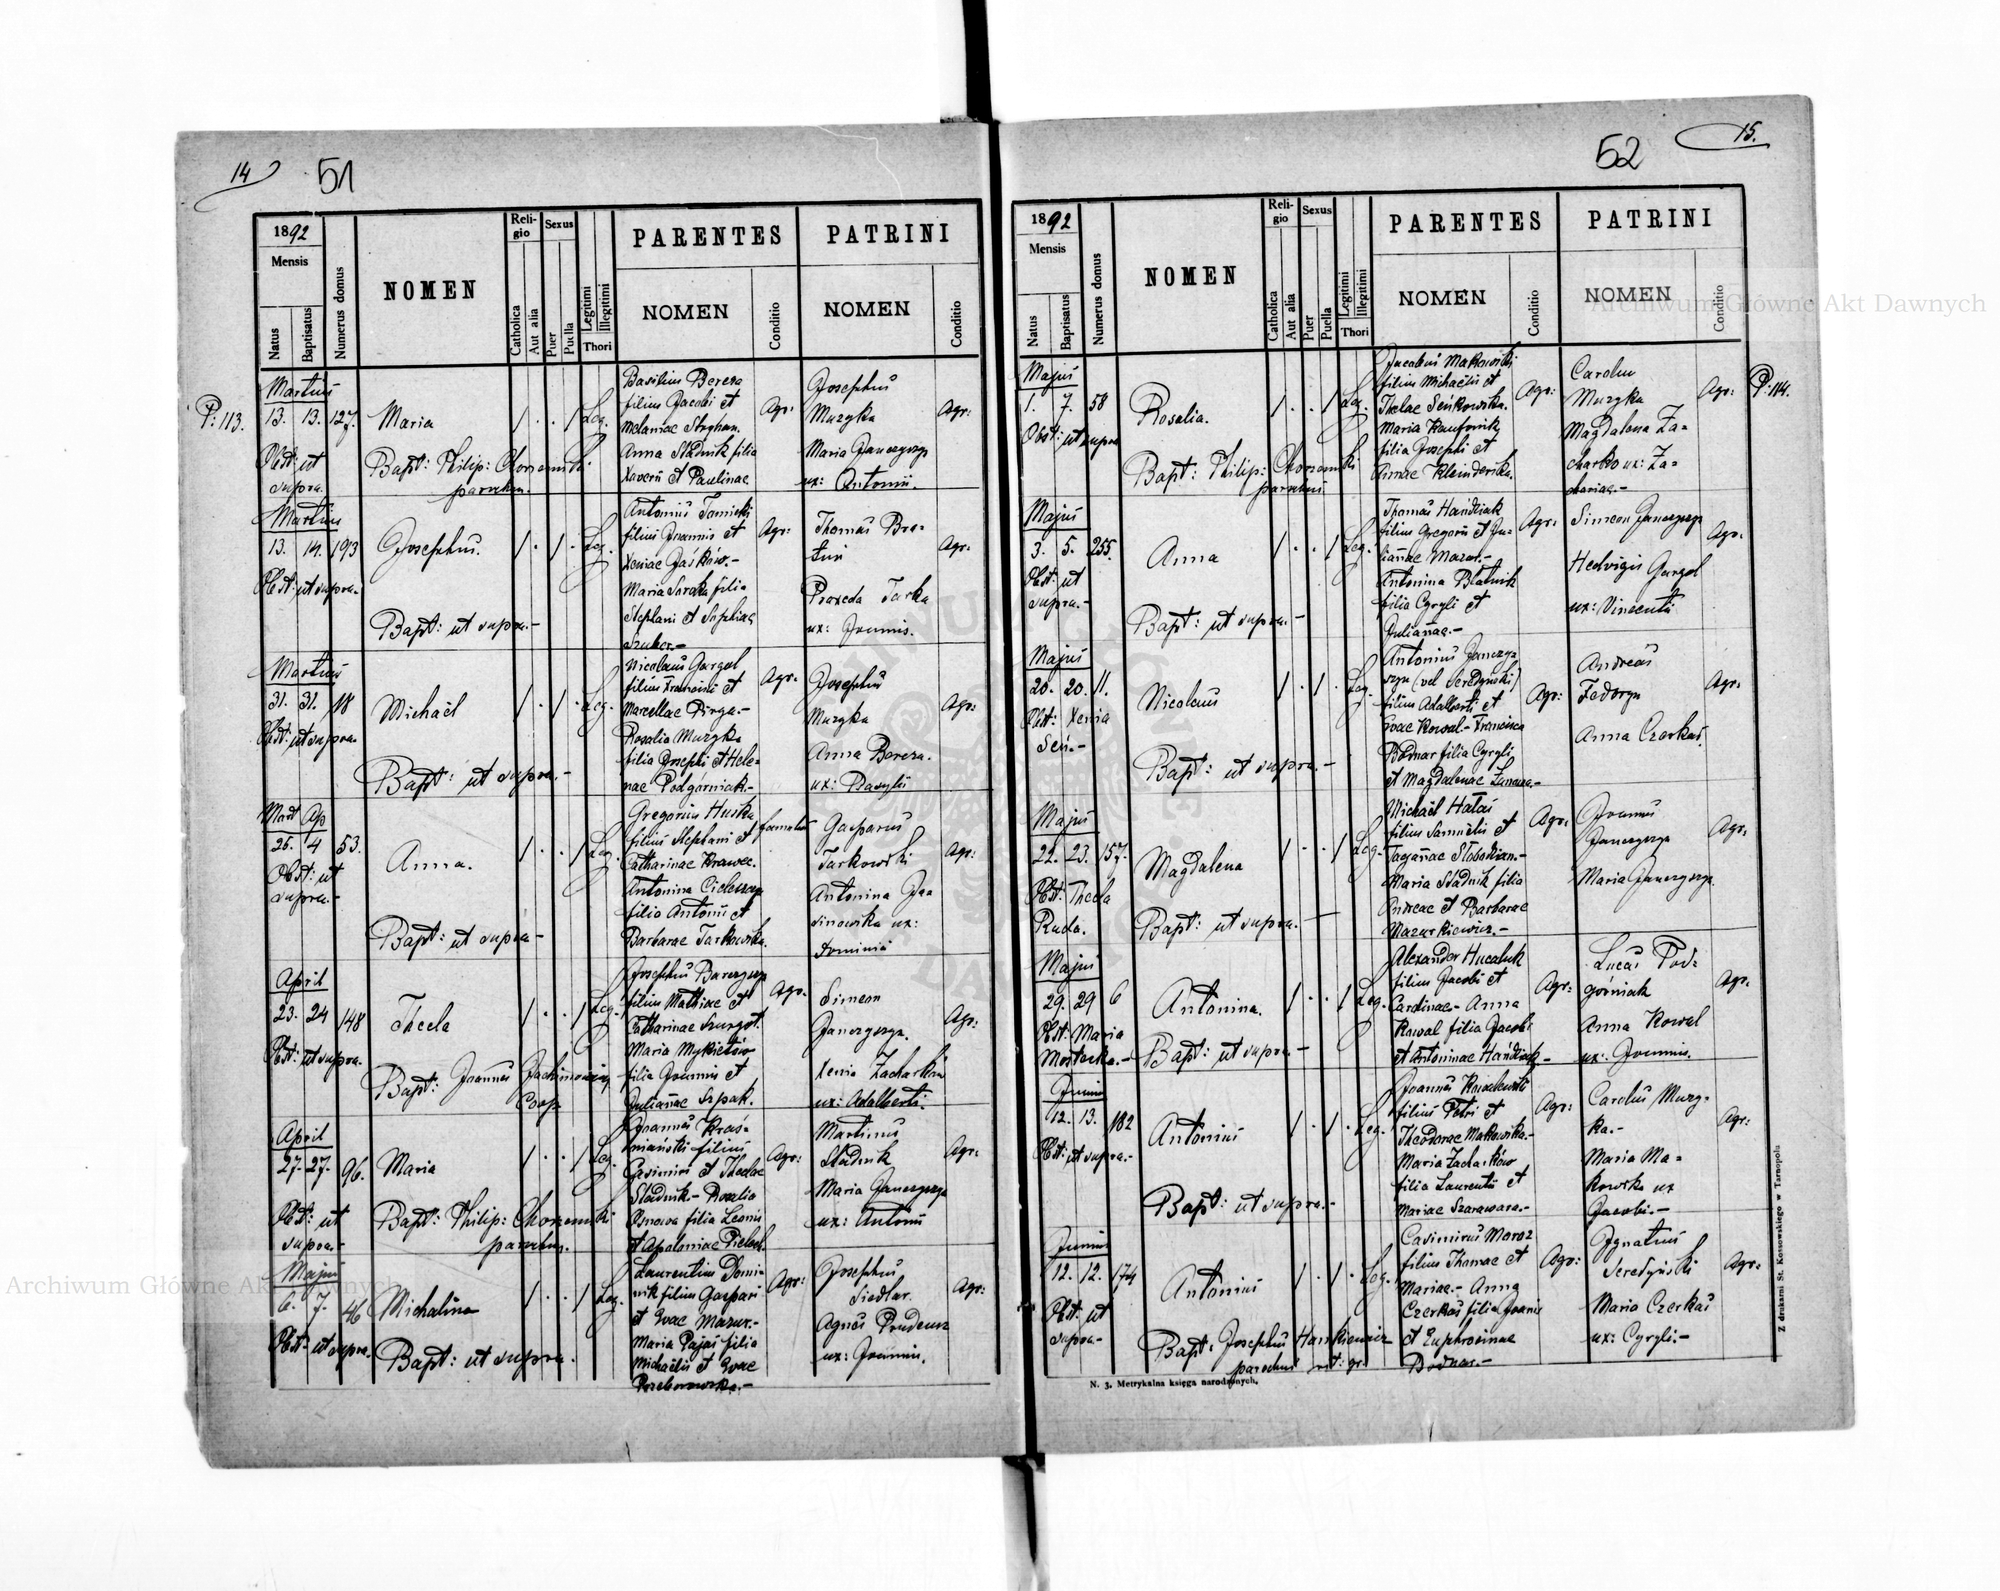 14
51
1892
Mensis
Natus
Baptisatus
Numerus domus
NOMEN
Reli-
gio
Catholica
Aut alia
Sexus
Puer
Puella
Legitimi
Illegitimi
Thori
PARENTES
NOMEN
Conditio
PATRINI
NOMEN
Conditio
P: 113.
Martius
13. 13. 127.
Obst: ut
supra.
Maria
Bapt: Philip: Chorzemski
parochus.
Leg.
Basilius Bereza
filius Jacobi et
Melaniae
Anna Stadnik filia
Xaverii et Paulinae
Agr:
Josephus
Muzyka
Maria Janczyszyn
ux: Antonii.
Agr:
Martius
13. 14. 193
Obst: ut supra.-
Josephus.
Bapt: ut supra.-
Leg.
Antonius
filius Joannis et
Xeniae Jaśków.-
Maria Soroka filia
Stephani et Sophiae
Szuber.-
Agr:
Thomas
Praxeda Tarka
ux: Joannis.
Agr:
Martius
31. 31. 18
Obst: ut supra.
Michaël
Bapt: ut supra.-
Leg.
Nicolaus Gargol
filius Francisci et
Marcellae Pirga.-
Rosalia Muzyka
filia Josephi et Hele-
nae Podgórniak.-
Agr.
Josephus
Muzyka
Anna Bereza.
ux: Basylii
Agr:
Mart Ap
25. 4 53.
Obst: ut
supra.-
Anna.
Bapt: ut supra-
Leg.
Gregorius Huska
filius Stephani et
Catharinae Krawec.
Antonina
filia Antonii et
Barbarae Tarkowska.
famulus
Gasparus
Tarkowski
Antonina Ja-
sinowska ux:
Dominici
Agr:
April
23. 24 148
Obst: ut supra.
Thecla
Bapt: Joannes Jachimowicz
Coop
Leg.
Josephus
filius Mathiae et
Catharinae Szurgot.
Maria Mykietów
filia Joannis et
Julianae Szpak.
Agr.
Simeon
Janczyszyn.
Xenia Zacharków
ux: Adalberti.
Agr:
April
27. 27. 96.
Obst: ut
supra.-
Maria
Bapt: Philip: Chorzemski
parochus.
Leg.
Joannes Kraś-
niański filius
Casimiri et Theclae
Stadnik.- Rozalia
Osnowa filia Leonis
et Apoloniae
Agr:
Martinus
Stadnik
Maria Janczyszyn
ux: Antonii
Agr:
Majus
6. 7. 46
Obst: ut supra.
Michalina
Bapt: ut supra.
Leg.
Laurentius Domi-
nik filius Gaspari
et Evae Mazur.-
Maria Pająs filia
Michaëlis et Evae
Przeborowska.-
Agr:
Josephus
Siedlar.
Agnes Prudeus
ux: Joannis.
Agr:
52
15.
1892
Mensis
Natus
Baptisatus
Numerus domus
NOMEN
Reli-
gio
Catholica
Aut alia
Sexus
Puer
Puella
Legitimi
Illegitimi
Thori
PARENTES
NOMEN
Conditio
PATRINI
NOMEN
Conditio
P: 114.
Majus
1. 7. 58
Obst: ut supra
Roselia.
Bapt: Philip: Chorzemski
parochus
Leg.
Jacobus Makowski
filius Michaëlis et
Theclae Seńkowska.
Maria
filia Josephi et
Annae Kleinderika.
Agr:
Carolus
Muzyka
Magdalena Za-
charko ux: Za-
chariae.-
Agr:
Majus
3. 5. 255.
Obst: ut
supra.-
Anna
Bapt: ut supra.-
Leg.
Thomas Hańdziak
filius Gregorii et Ju-
lianae Mazur.-
Antonina Blatnik
filia Cyryli et
Julianae.-
Agr:
Simeon Janczyszyn
Hedvigis Gargol
ux: Vincentii
Agr:
Majus
20. 20. 11.
Obst: Xenia
Seń.-
Nicolaus
Bapt: ut supra.-
Leg.
Antonius Janczy-
szyn (vel Seredynski)
filius Adalberti et
Evae Kowal.- Francisca
Bodnar filia Cyryli
et Magdalenae
Agr:
Andreas
Fedoryn
Anna Czerkas.
Agr:
Majus
22. 23. 157.
Obst: Thecla
Ruda.
Magdalena
Bapt: ut supra.-
Leg.
Michaël Hałas
filius Samuelis et
Tacianae Słobodzian.-
Maria Stadnik filia
Andreae et Barbarae
Mazurkiewicz.-
Agr:
Joannes
Janczyszyn
Maria Janczyszyn.
Agr:
Majus
29. 29 6
Obst: Maria
Antonina.
Bapt: ut supra.-
Leg.
Alexander Hucaluk
filius Jacobi et
Carolinae.- Anna
Kowal filia Jacobi
et Antoninae Hańdziak.-
Agr:
Lucas Pod-
górniak
Anna Kowal
ux: Joannis.
Agr:
Junius
12. 13. 182
Obst: ut supra.-
Antonius
Bapt: ut supra.-
Leg.
Joannes Kowalewski
filius Petri et
Theodorae Makowska.-
Maria Zacharków
filia Laurentii et
Mariae Szarawara.-
Agr:
Carolus Muzy-
ka.-
Maria Ma-
kowska ux
Jacobi.-
Agr:
Junius
12. 12. 174
Obst: ut
supra-
Antonius
Bapt: Josephus Hankiewicz
parochus rit: gr.
Leg.
Casimirus Moroz
filius Thomae et
Mariae.- Anna
Czerkas filia Joanis
et Euphrosinae
Bodnar.-
Agr:
Ignatius
Seredyński
Maria Czerkas
ux: Cyryli.-
Agr:
N. 3. Metrykalna księga narodzonych.
Z drukarni St. Kossowskiego w Tarnopolu
Archiwum Główne Akt Dawnych
Archiwum Główne Akt Dawnych